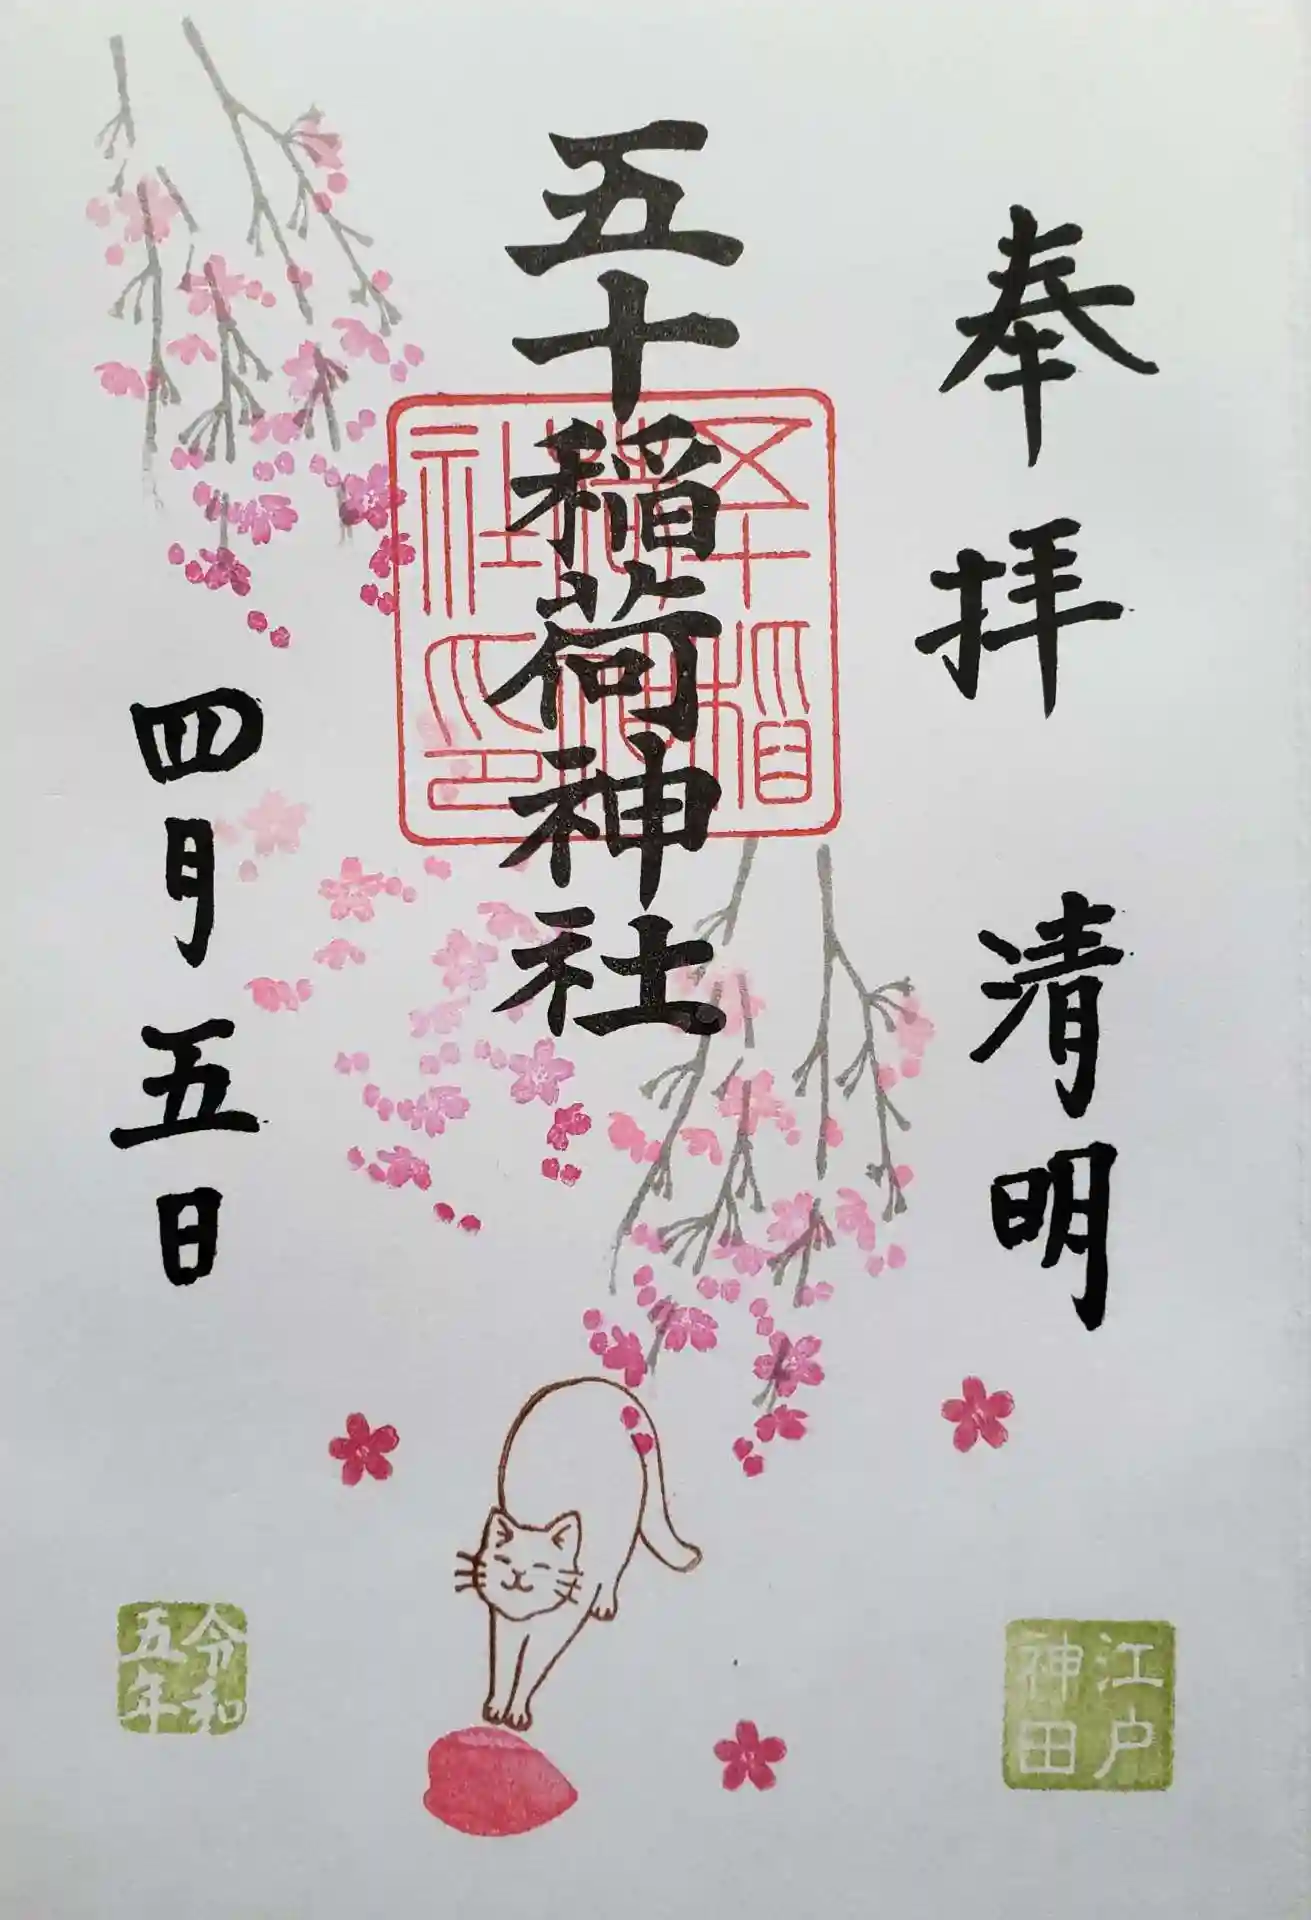 奉拝 清明
五十稲荷神社
五十稲荷神社之印
四月五日
江戸
神田
令和
五年